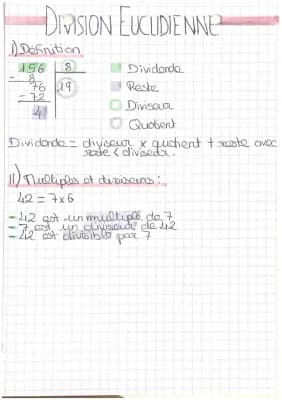 DIVISION EUCLIDIENNE
I) Définition
156 | 8
- 8
76 | 19
- 72
4
Dividende
Reste
Diviseur
Quotient
Dividende = diviseur x quotient + reste avec
reste < diviseur.
II) Multiples et diviseurs :
42 = 7x6
- 42 est un multiple de 7
- 7 est un diviseur de 42
- 42 est divisible par 7